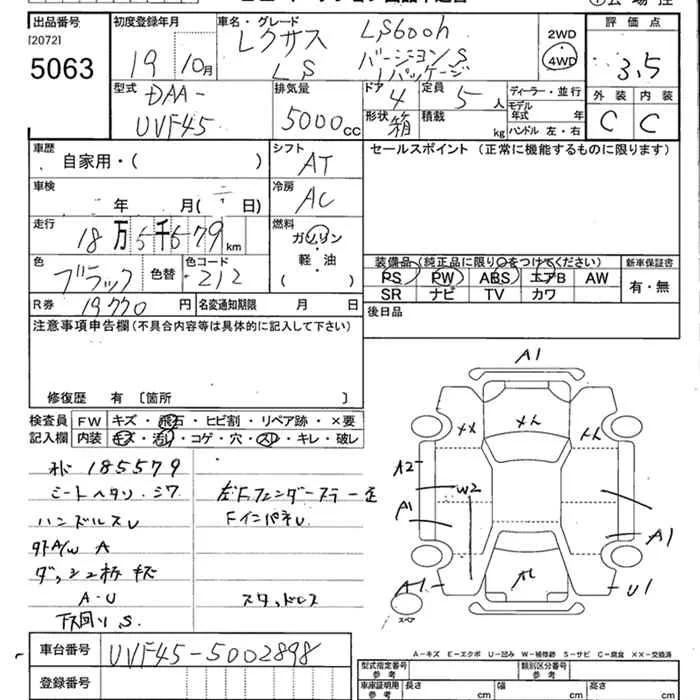 出品番号 初度登録年月 車名・グレード レクサス LS600h 2WD 評価点
[2072]
5063 19 10月 LS バージョンS Iパッケージ 4WD 3.5
型式 DAA- 排気量 ドア 4 定員 5人 ディーラー・並行 外装 内装
モデル年式 年
UVF45 5000cc 形状 箱 積載 kg ハンドル 左・右 C C
車歴 自家用・( ) シフト AT セールスポイント (正常に機能するものに限ります)
車検 年 月( 日) 冷房 AC
走行 18万5千679km 燃料 ガソリン 軽・油 ( )
色 ブラック 色替 色コード 212
装備品(純正品に限り○をつけてください) 新車保証書
PS PW ABS エアB AW 有・無
SR ナビ TV カワ
R券 19770円 名変通知期限 月 日 後日品
注意事項申告欄(不具合内容等は具体的に記入して下さい)
修復歴 有 〔箇所 〕
検査員 FW キズ・飛石・ヒビ割・リペア跡・×要
記入欄 内装 キズ・汚れ・コゲ・穴・スレ・キレ・破レ
185579
シートヘタリ・シワ 左Fフェンダーステー
ハンドルスレ Fインパネ
外A/W A
ダッシュ キズ
A-U スタッドレス
下回り S.
A1
×× ×
A2
W2
A1
A1
A1
U1
スペア
A-キズ E-エクボ U-凹み W-補修跡 S-サビ C-腐食 ××-交換済
車台番号 UVF45-5002898
登録番号
型式指定番号 参考 類別区分番号 参考
車庫証明用 参考 長さ cm 幅 cm 高さ cm